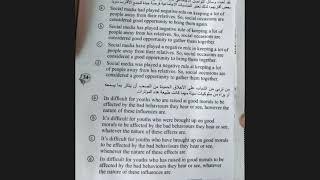 a Social media has played negative role on keeping a lot of
people away from their relatives. So, social occasions are
considered great opportunity to bring them again.
b Social media had played negative role of keeping a lot of
people away from their relatives. So, social occasions are
considered a good opportunity to bring them together.
c Social media have played a negative role in keeping a lot of
people away from their relatives. So, social occasions are
considered a good opportunity to gather them together.
d Social media was played a negative role at keeping a lot of
people away from their relatives. So, social occasions are
considered a good opportunity to gather them together.
من تربى من الشباب على الأخلاق الحميدة من الصعب أن يتأثر بما يسمعه
a It's difficult for youths who are raised in good morals to be
affected by the bad behaviours they hear or see, however
the nature of these influences are.
b It's difficult for youths who were brought up on good
morals to be affected by the bad behaviours they hear or see,
whatever the nature of these effects are.
c It's difficult for youths who have brought up on good morals
to be affected by the bad behaviours they hear or see,
whenever the nature of these effects are.
d Its difficult for youths who has raised in good morals to be
affected by the bad behaviours they hear or see,
whatever the nature of these influences are.